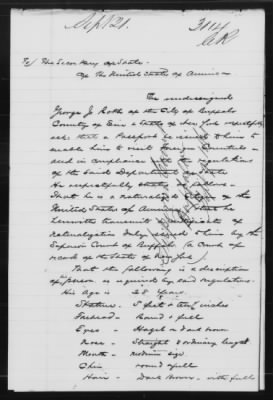 Sept 21.
To/ The Secretary of State
Of The United States of America
The undersigned
George J. Roth of the City of Buffalo
County of Erie & State of New York respectfully
asks that a Passport be issued to him to
enable him to visit foreign Countries
and in compliance with the regulations
of the said Department of State
He respectfully states as follows
That he is a naturalized Citizen of the
United States of America
herewith transmits Certificate of
naturalization duly issued to him by the
Superior Court of Buffalo (a Court of
record of the State of New York)
That the following is a description
of person as required by said regulations.
His Age is 28 years
Stature - 5 feet & inches
Forehead - Round & full
Eyes - Hazel or dark brown
Nose - Straight & ordinary length
Mouth - medium size
Chin round
Hair - Dark brown - with full